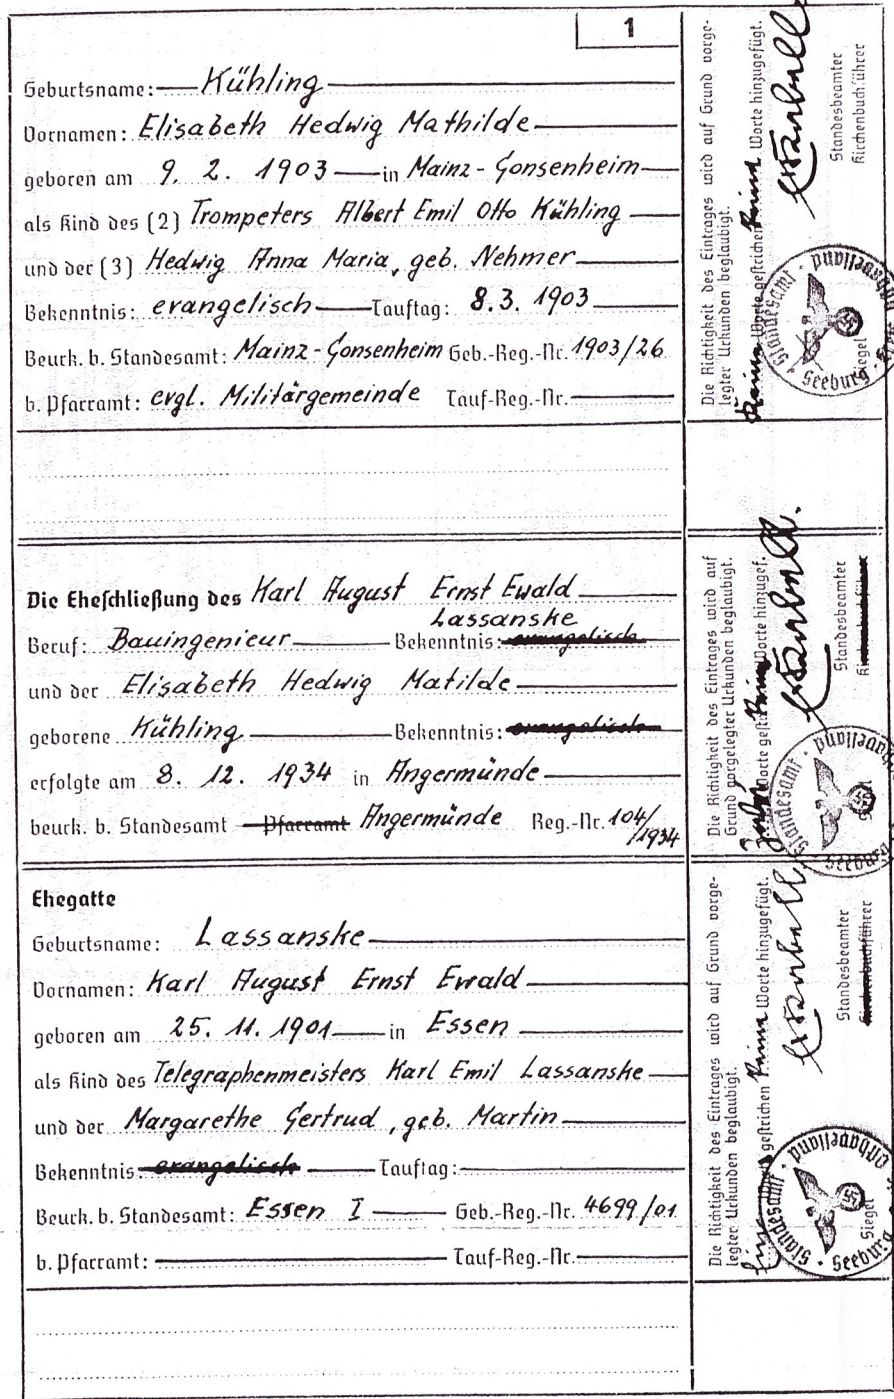 1
Geburtsname: Kühling
Vornamen: Elisabeth Hedwig Mathilde
geboren am 9. 2. 1903 in Mainz-Gonsenheim
als Kind des (2) Trompeters Albert Emil Otto Kühling
und der (3) Hedwig Anna Maria, geb. Nehmer
Bekenntnis: evangelisch Tauftag: 8.3. 1903
Beurk. b. Standesamt: Mainz-Gonsenheim Geb.-Reg.-Nr. 1903/26
b. Pfarramt: evgl. Militärgemeinde Tauf-Reg.-Nr.
Die Richtigkeit des Eintrages wird auf Grund vorge-
legter Urkunden beglaubigt.
Worte gestrichen Worte hinzugefügt.
Standesbeamter
Kirchenbuchführer
Standesamt · Seeburg · Osthavelland
Siegel
Die Eheschließung des Karl August Ernst Ewald
Lassanske
Beruf: Bauingenieur Bekenntnis: evangelisch
und der Elisabeth Hedwig Matilde
geborene Kühling Bekenntnis: evangelisch
erfolgte am 8. 12. 1934 in Angermünde
beurk. b. Standesamt Pfarramt Angermünde Reg.-Nr. 104/
1934
Die Richtigkeit des Eintrages wird auf
Grund vorgelegter Urkunden beglaubigt.
Worte gestr. Worte hinzugef.
Standesbeamter
Kirchenbuchführer
Standesamt · Seeburg
Siegel
Ehegatte
Geburtsname: Lassanske
Vornamen: Karl August Ernst Ewald
geboren am 25. 11. 1901 in Essen
als Kind des Telegraphenmeisters Karl Emil Lassanske
und der Margarethe Gertrud, geb. Martin
Bekenntnis: evangelisch Tauftag:
Beurk. b. Standesamt: Essen I Geb.-Reg.-Nr. 4699/01
b. Pfarramt: Tauf-Reg.-Nr.
Die Richtigkeit des Eintrages wird auf Grund vorge-
legter Urkunden beglaubigt.
gestrichen Worte hinzugefügt.
Standesbeamter
Kirchenbuchführer
Standesamt · Seeburg · Osthavelland
Siegel